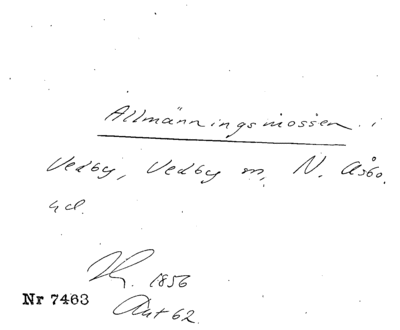 Allmänningsmossen i
Vedby, Vedby m, N. Åsbo.
hd.
1856
Nr 7463
Aut 62.